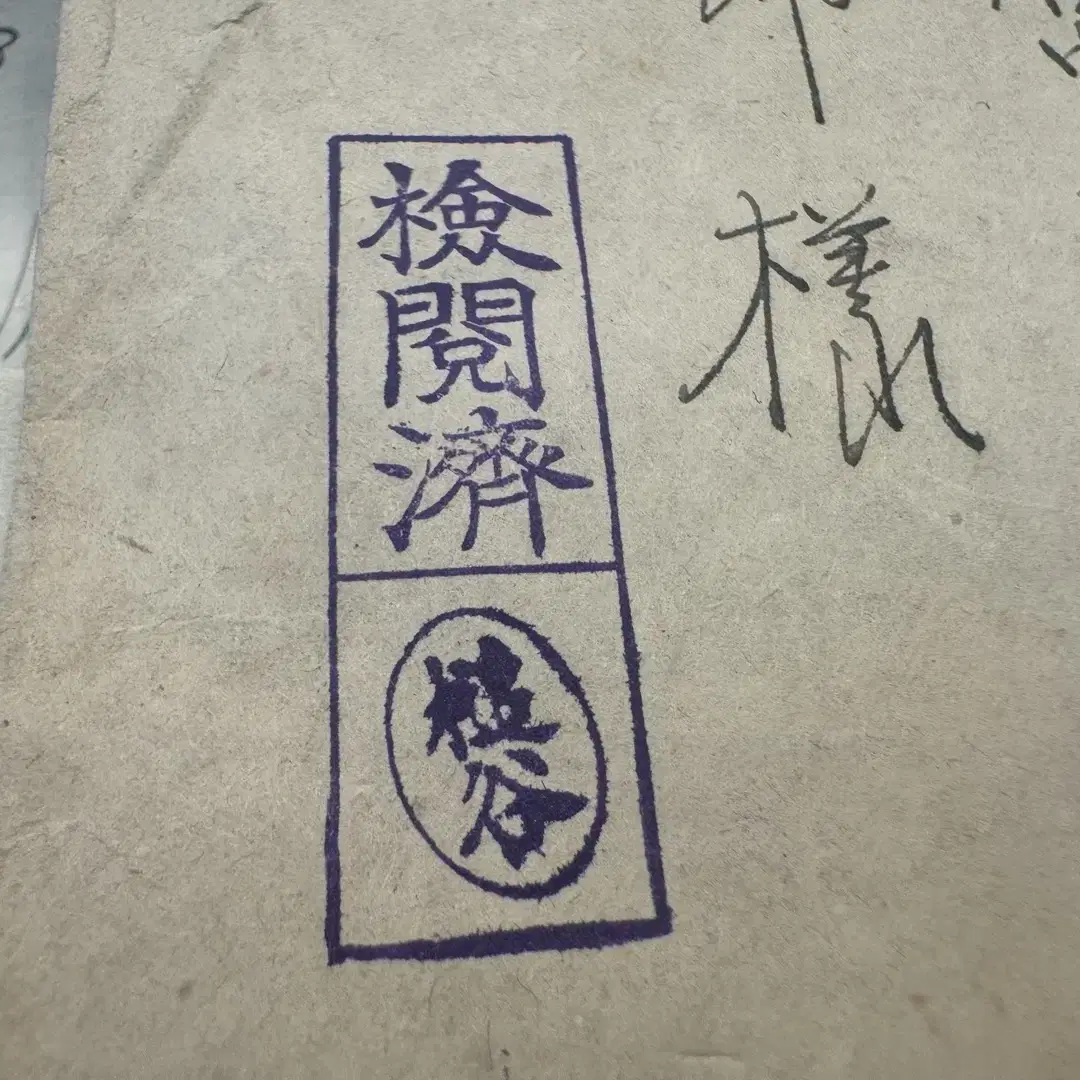 様
検閲濟
植谷